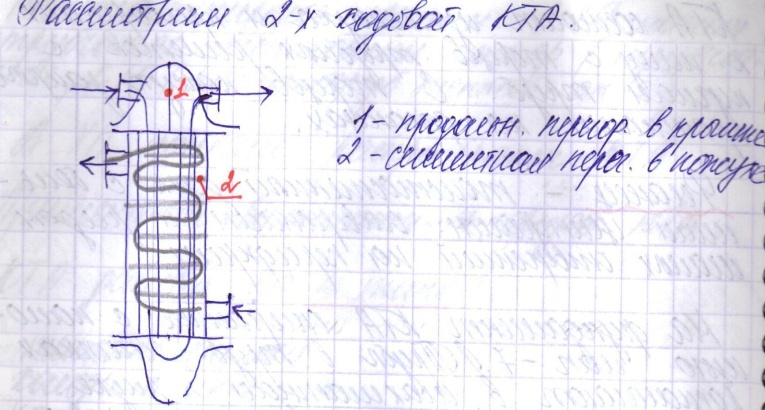 Рассмотрим 2-х ходовой КТА.
1
1 - продольн. перегор. в крышке
2 - сегментная перег. в кожухе
2